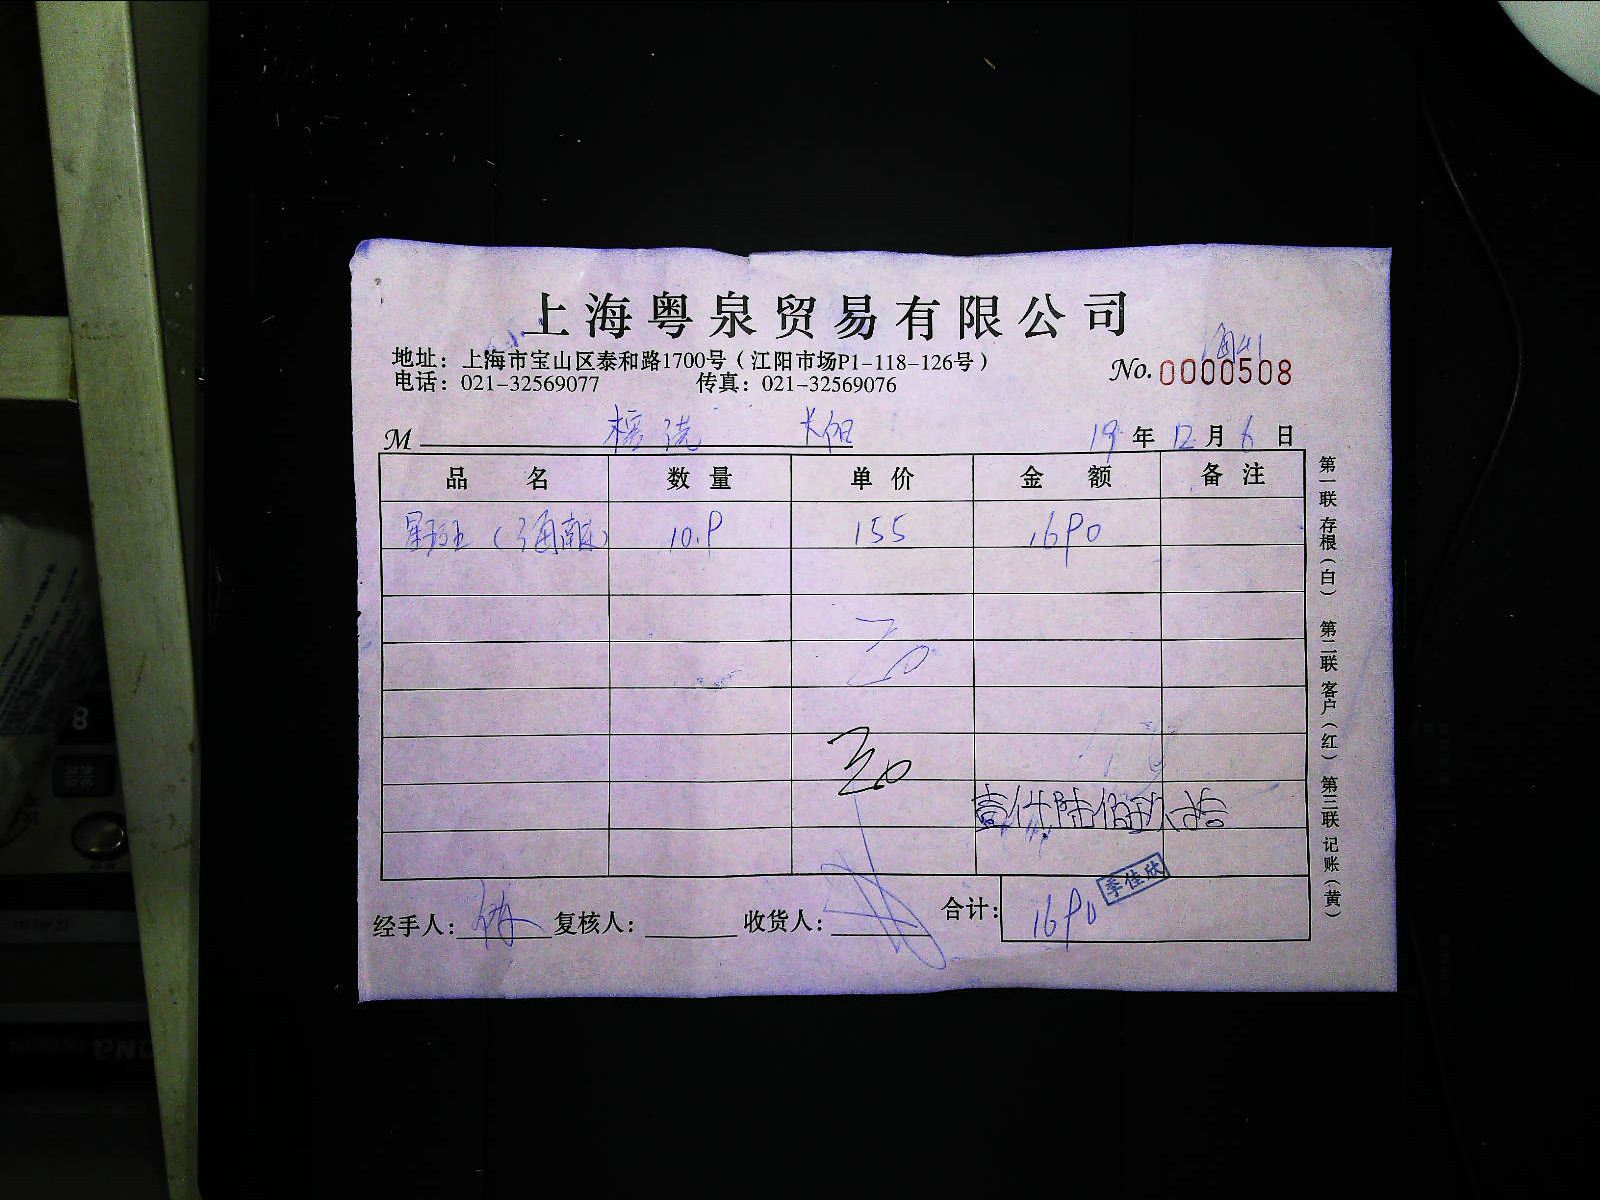 上海粤泉贸易有限公司
地址：上海市宝山区泰和路1700号（江阳市场P1-118-126号）
电话：021-32569077 传真：021-32569076
No.0000508
M
19年12月6日
品名 数量 单价 金额 备注
星斑（海南） 10.9 155 1690
壹仟陆佰玖拾
经手人： 复核人： 收货人： 合计：1690
李佳欣
第一联 存根（白） 第二联 客户（红） 第三联 记账（黄）